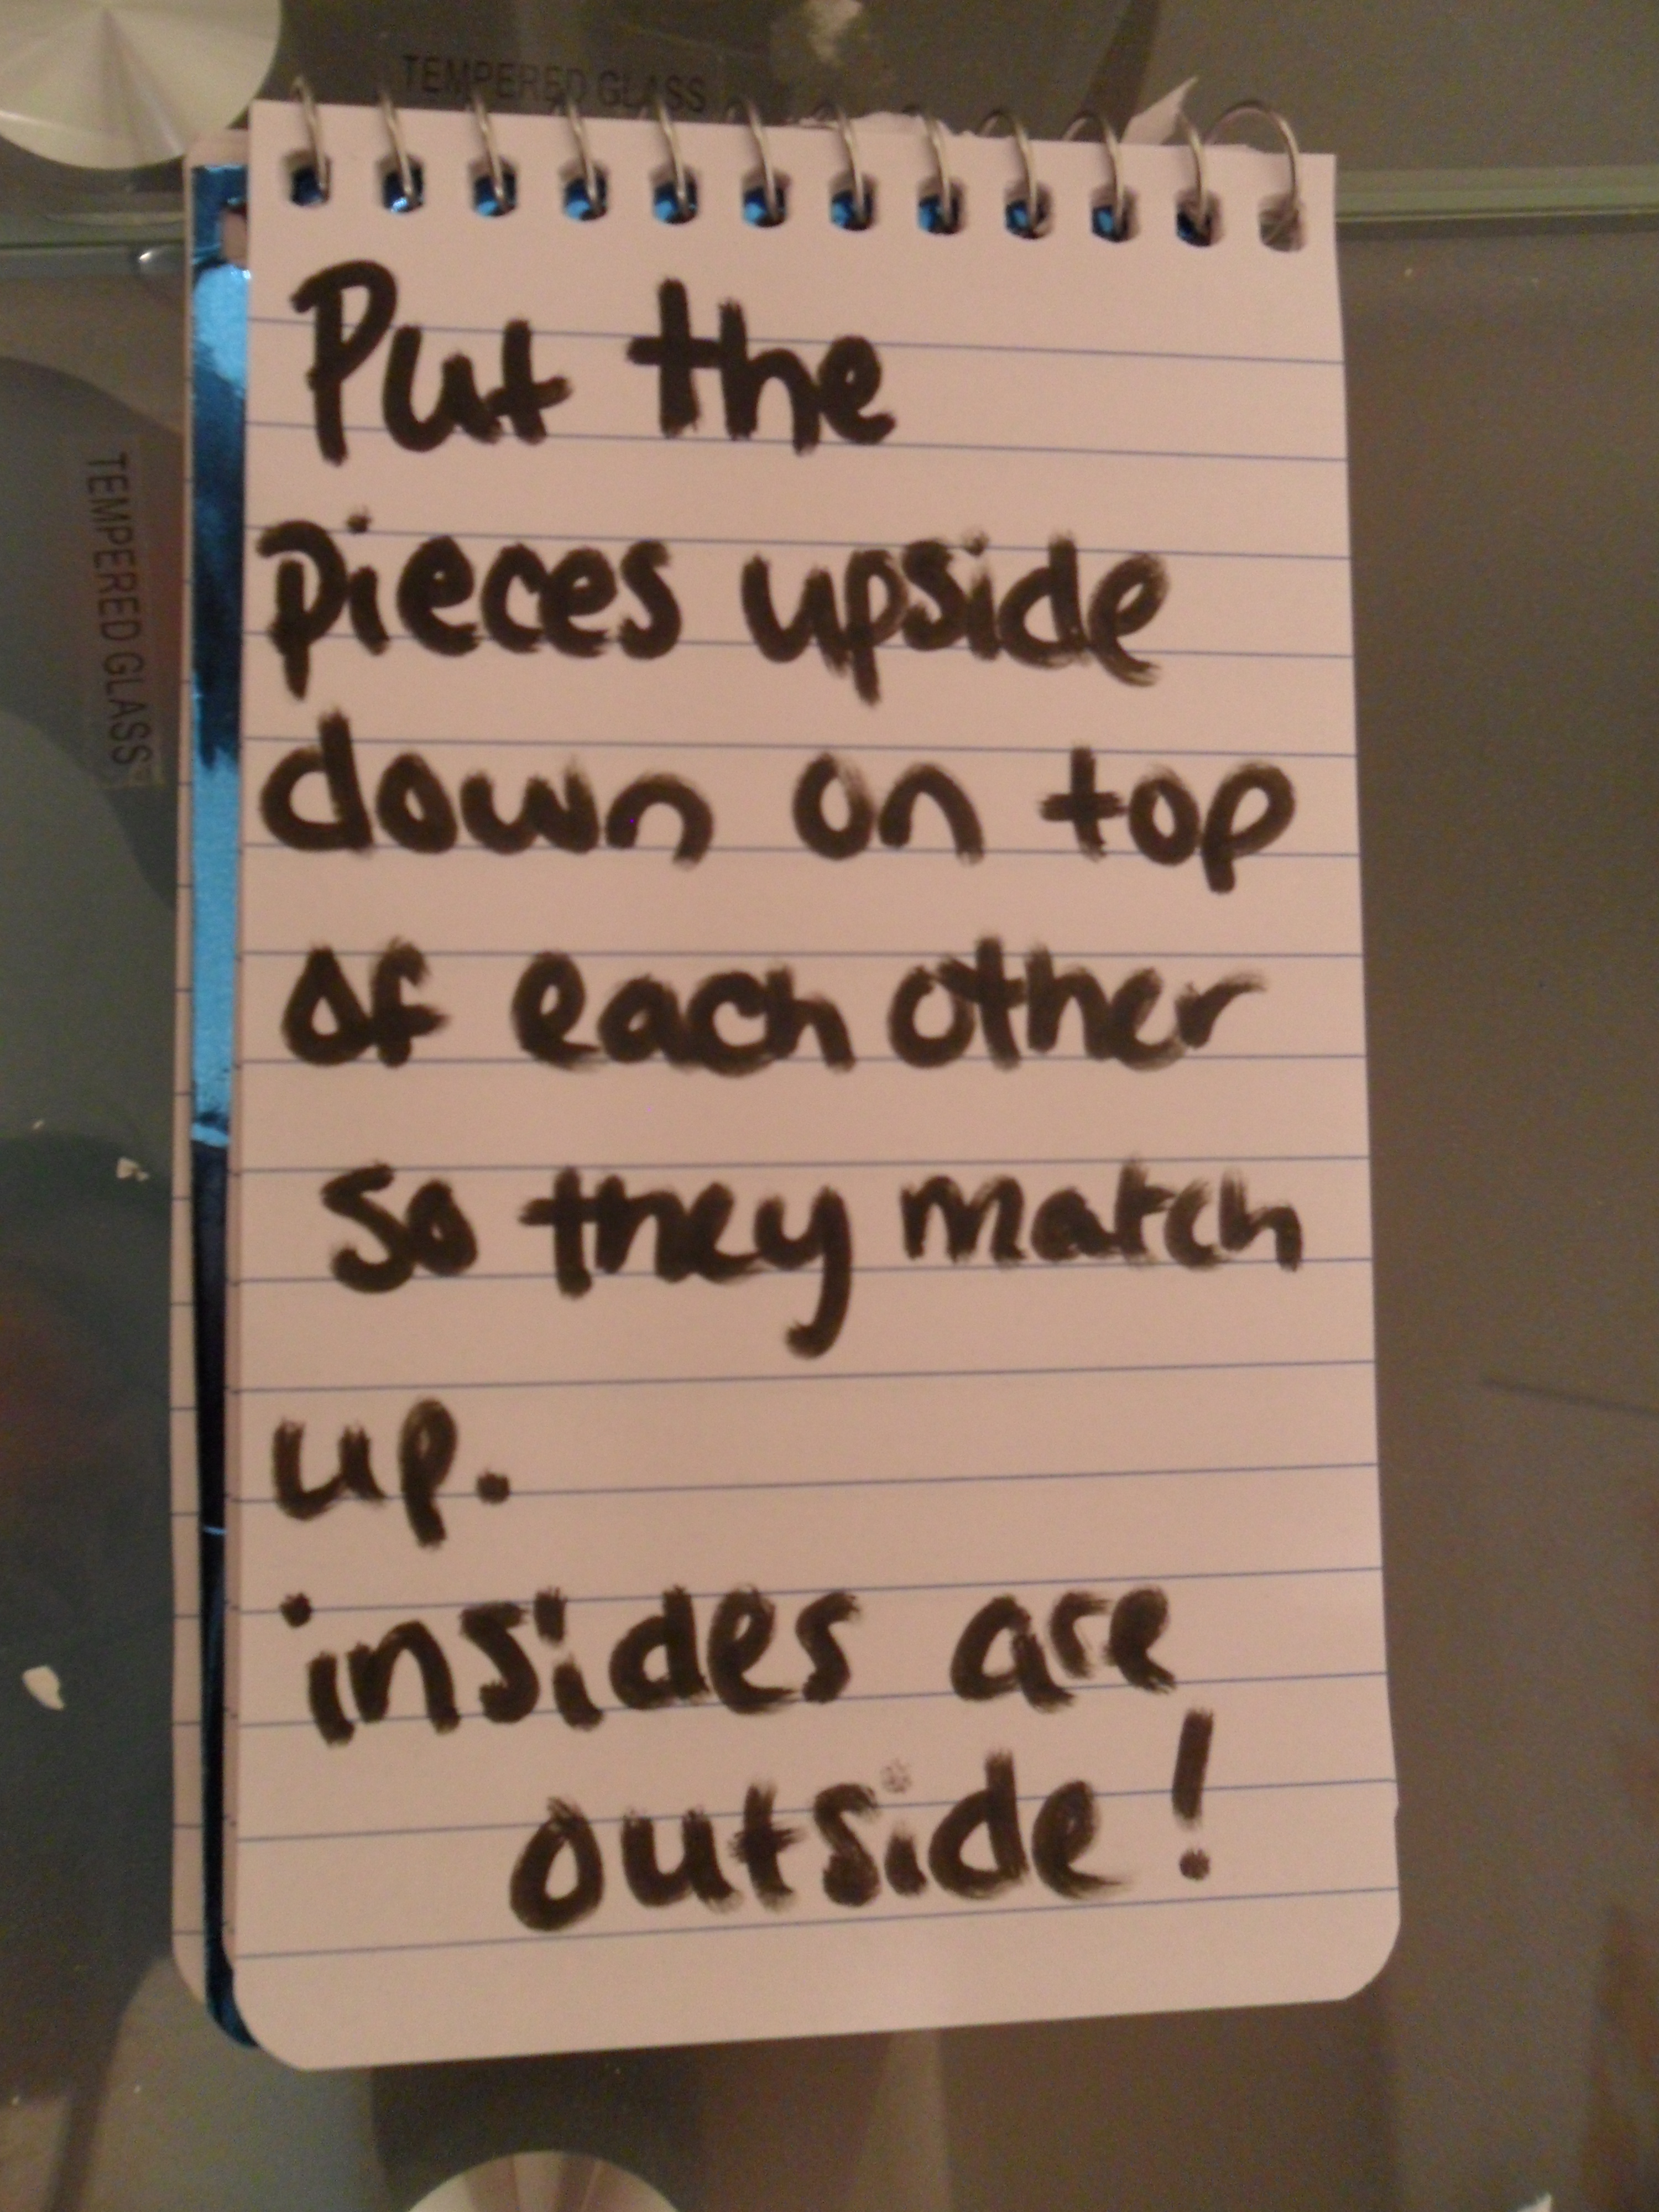 TEMPERED GLASS
TEMPERED GLASS
Put the
pieces upside
down on top
of each other
so they match
up.
insides are
outside!